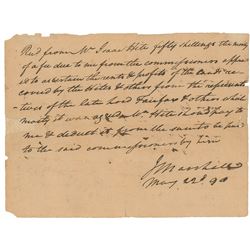 Recd from Mr Isaac Hite fifty shillings the moiety
of a fee due to me from the commissioners appoint
to ascertain the rents & profits of the lands re
covered by the Hites & others from the representa
tives of the late lord Fairfax & others which
moiety it was agreed Mr Hite should pay to
me & deduct it from the sum to be paid
to the said commissioners by him
J Marshall
May 22d 90